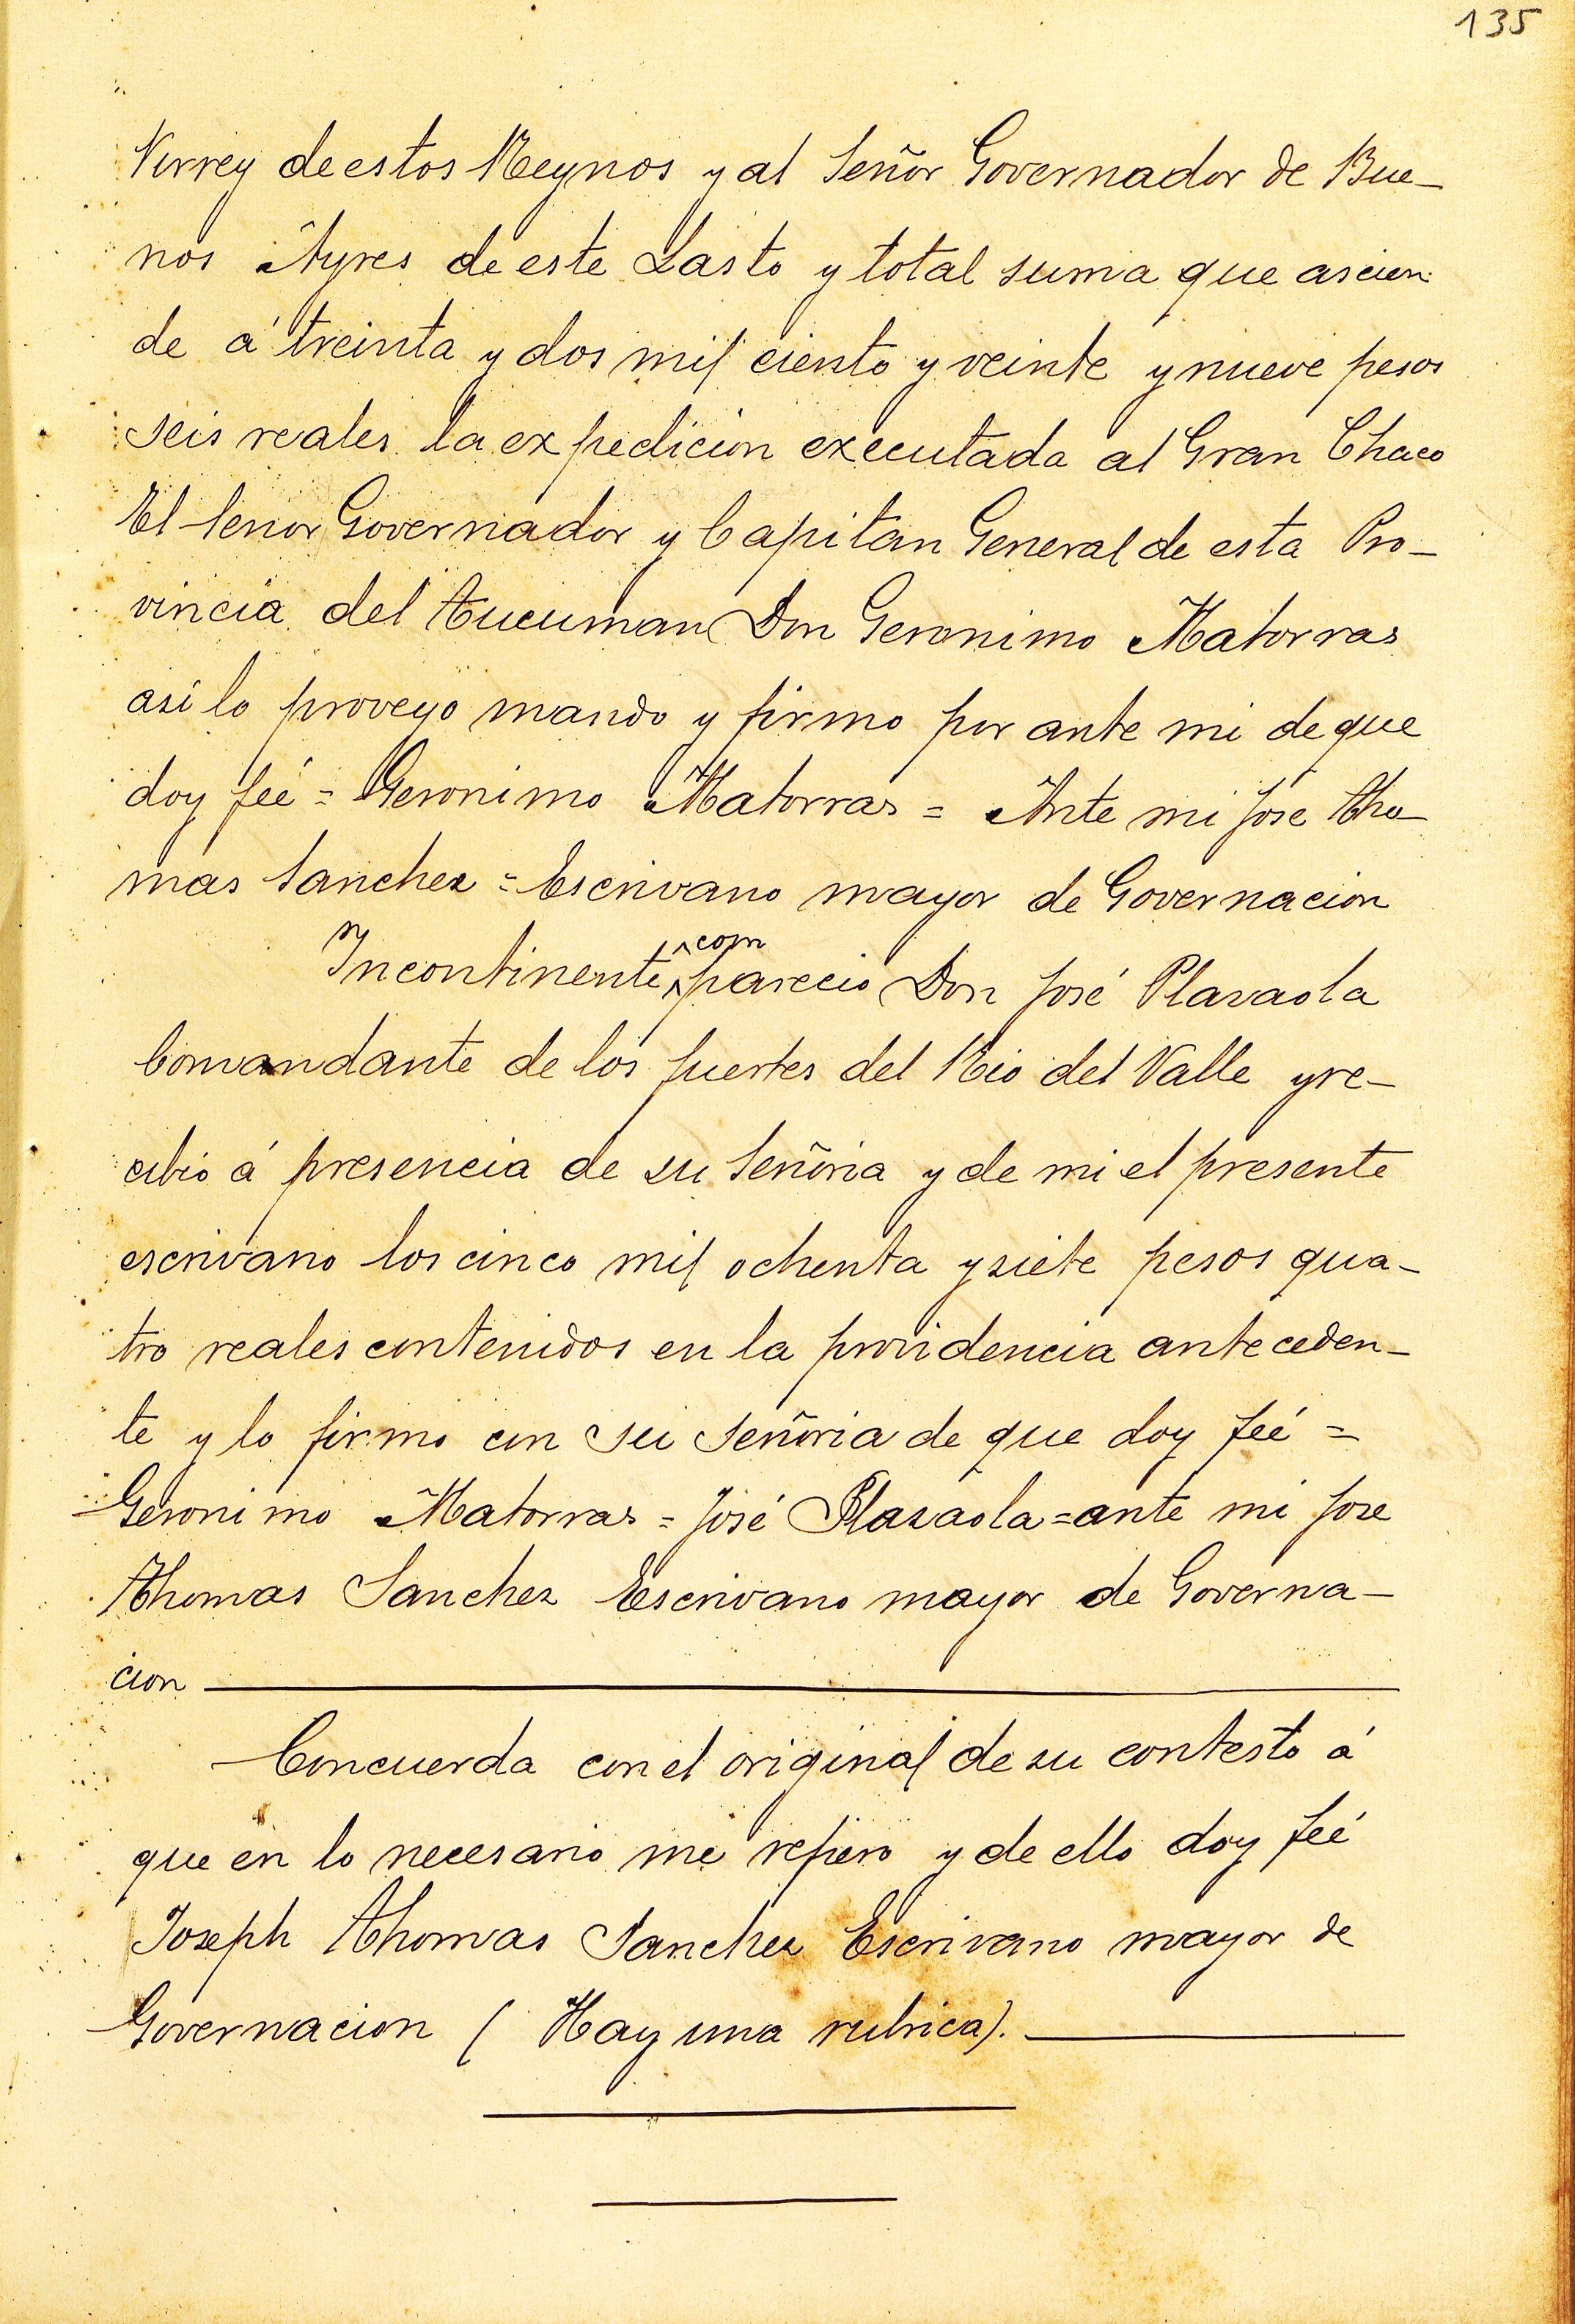 135
Virrey de estos Reynos y al Señor Governador de Bue-
nos Ayres de este Lasto y total suma que ascien-
de á treinta y dos mil ciento y veinte y nueve pesos
seis reales la expedicion executada al Gran Chaco
El Señor Governador y Capitan General de esta Pro-
vincia del Tucuman Don Geronimo Matorras
asi lo proveyo mando y firmo por ante mi de que
doy feé = Geronimo Matorras = Ante mi José Tho-
mas Sanchez = Escrivano mayor de Governacion
Incontinente compareció Don José Plazaola
Comandante de los fuertes del Rio del Valle y re-
cibió á presencia de su Señoria y de mi el presente
escrivano los cinco mil ochenta y siete pesos qua-
tro reales contenidos en la providencia anteceden-
te y lo firmo con su Señoria de que doy feé =
Geronimo Matorras = José Plazaola = ante mi Jose
Thomas Sanchez Escrivano mayor de Governa-
cion
Concuerda con el original de su contesto á
que en lo necesario me refiero y de ello doy feé
Joseph Thomas Sanchez Escrivano mayor de
Governacion (Hay una rubrica).